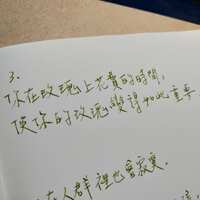 3.
你在玫瑰上花費的時間,
使你的玫瑰變得如此重要
在人群裡也會寂寞.